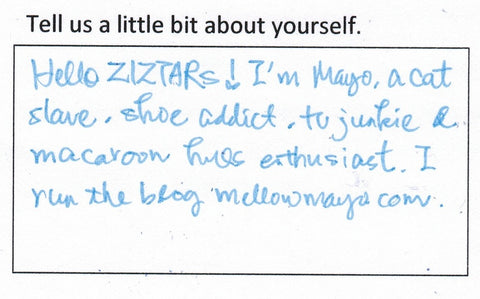 Tell us a little bit about yourself.
Hello ZIZTARs! I'm Mayo, a cat
slave, shoe addict, tv junkie &
macaroon enthusiast. I
run the blog mellowmayo com.